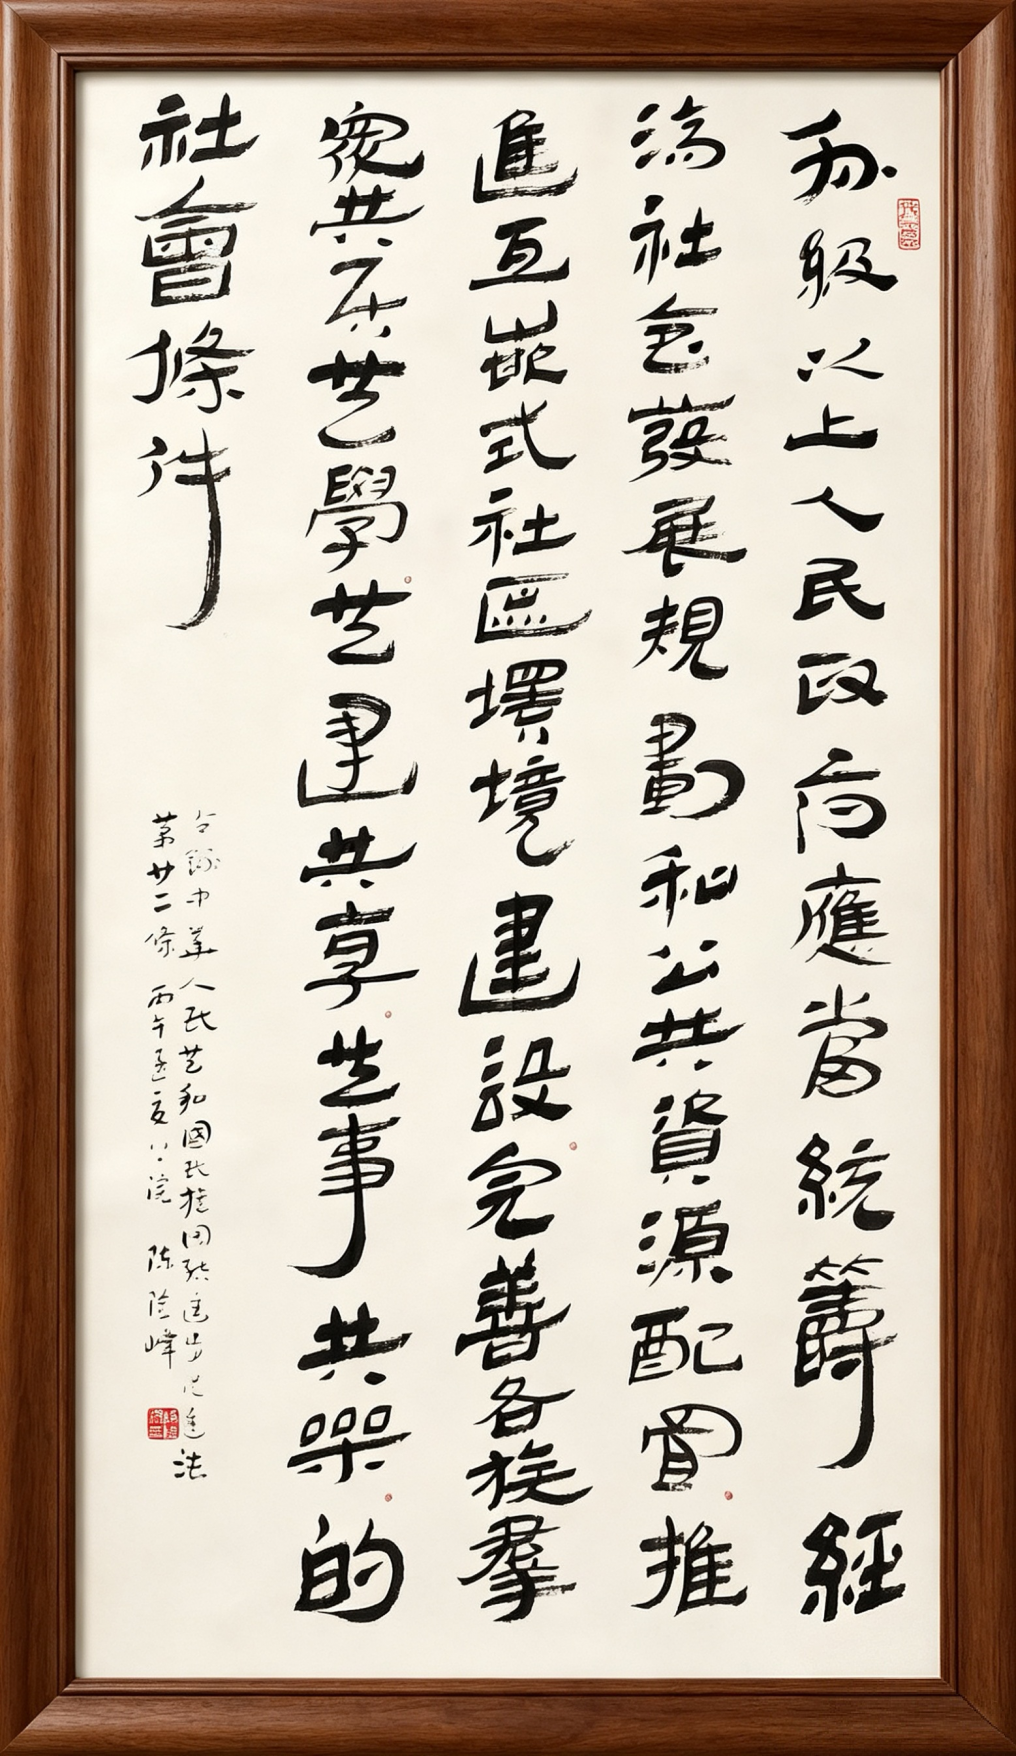 縣級以上人民政府應當統籌經
濟社會發展規劃和公共資源配置推
進互嵌式社區環境建設完善各族羣
衆共居共學共建共享共事共樂的
社會條件
今錄中華人民共和國民族團結進步促進法
第廿二條 丙午孟夏 院 陈 峰